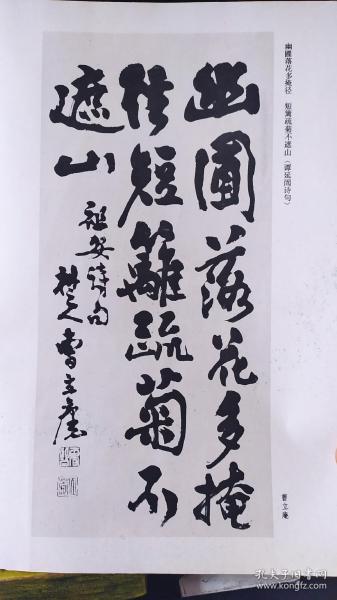 幽圃落花多掩径 短篱疏菊不遮山（谭延闿诗句）
幽圃落花多掩
径短籬疏菊不
遮山
祖安诗句
楚人曹立庵
曹立庵
孔夫子旧书网
www.kongfz.com